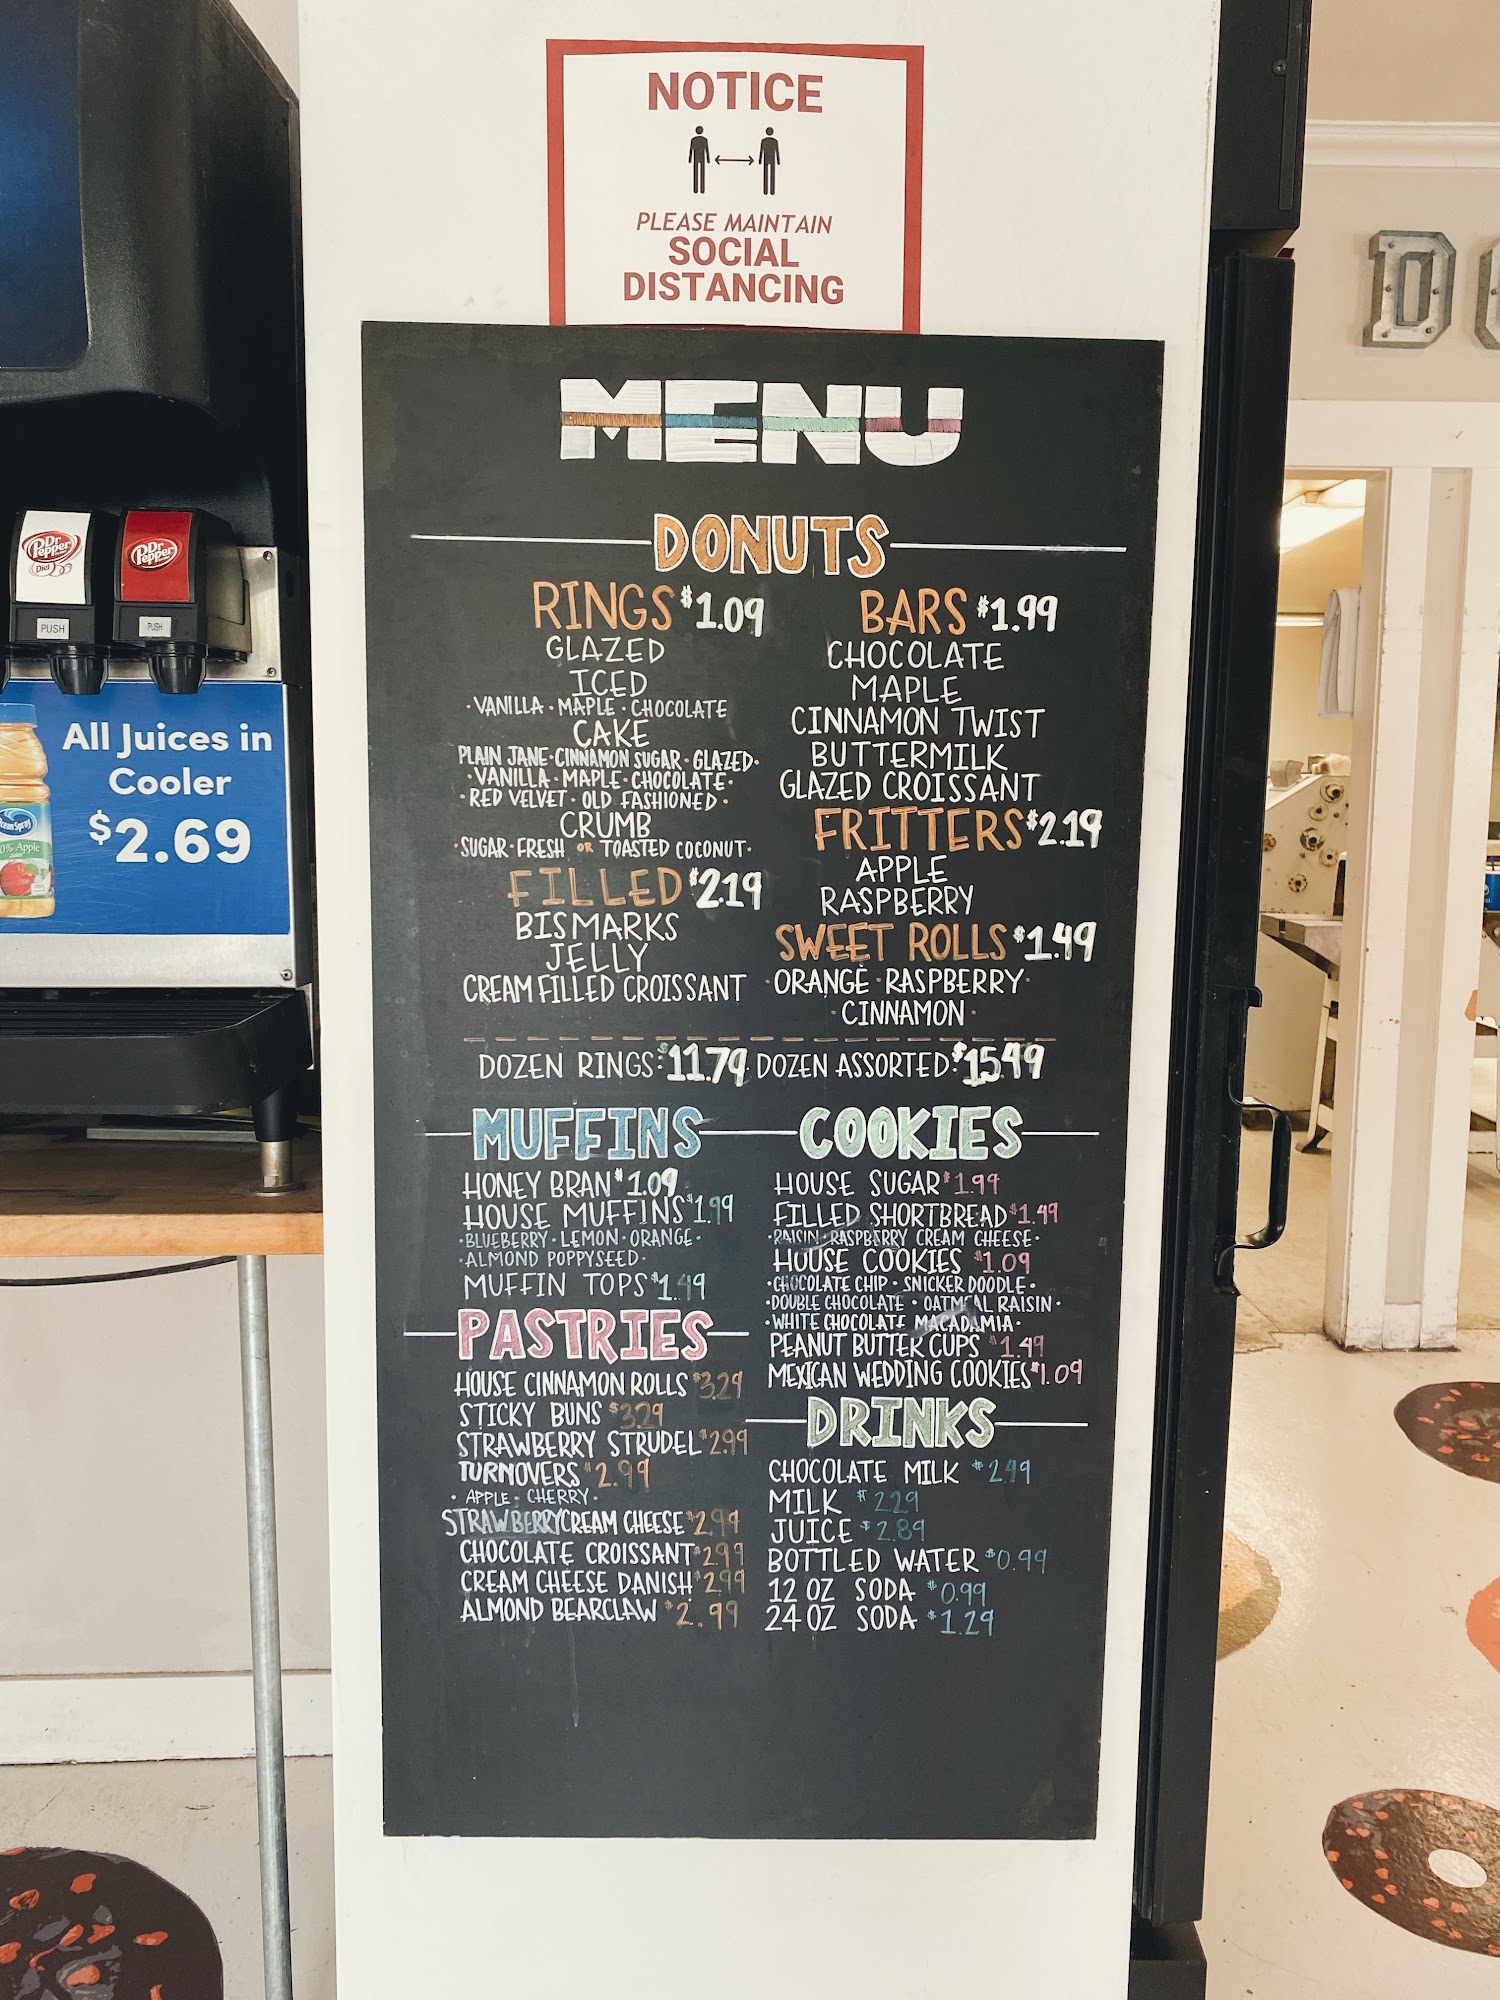 NOTICE
PLEASE MAINTAIN
SOCIAL
DISTANCING
MENU
DONUTS
RINGS $1.09
GLAZED
ICED
· VANILLA · MAPLE · CHOCOLATE
CAKE
PLAIN JANE · CINNAMON SUGAR · GLAZED ·
· VANILLA · MAPLE · CHOCOLATE ·
· RED VELVET · OLD FASHIONED ·
CRUMB
· SUGAR · FRESH OR TOASTED COCONUT ·
FILLED $2.19
BISMARKS
JELLY
CREAM FILLED CROISSANT
BARS $1.99
CHOCOLATE
MAPLE
CINNAMON TWIST
BUTTERMILK
GLAZED CROISSANT
FRITTERS $2.19
APPLE
RASPBERRY
SWEET ROLLS $1.49
· ORANGE · RASPBERRY ·
· CINNAMON ·
DOZEN RINGS: $11.79 DOZEN ASSORTED: $15.49
MUFFINS
HONEY BRAN $1.09
HOUSE MUFFINS $1.99
· BLUEBERRY · LEMON · ORANGE ·
· ALMOND POPPYSEED ·
MUFFIN TOPS $1.49
PASTRIES
HOUSE CINNAMON ROLLS $3.29
STICKY BUNS $3.29
STRAWBERRY STRUDEL $2.99
TURNOVERS $2.99
· APPLE · CHERRY ·
STRAWBERRY CREAM CHEESE $2.99
CHOCOLATE CROISSANT $2.99
CREAM CHEESE DANISH $2.99
ALMOND BEARCLAW $2.99
COOKIES
HOUSE SUGAR $1.99
FILLED SHORTBREAD $1.49
· RAISIN · RASPBERRY CREAM CHEESE ·
HOUSE COOKIES $1.09
· CHOCOLATE CHIP · SNICKER DOODLE ·
· DOUBLE CHOCOLATE · OATMEAL RAISIN ·
· WHITE CHOCOLATE MACADAMIA ·
PEANUT BUTTER CUPS $1.49
MEXICAN WEDDING COOKIES $1.09
DRINKS
CHOCOLATE MILK $2.49
MILK $2.29
JUICE $2.89
BOTTLED WATER $0.99
12 OZ SODA $0.99
24 OZ SODA $1.29
Dr Pepper
Diet
PUSH
Dr Pepper
PUSH
All Juices in
Cooler
$2.69
Ocean Spray
Apple
D